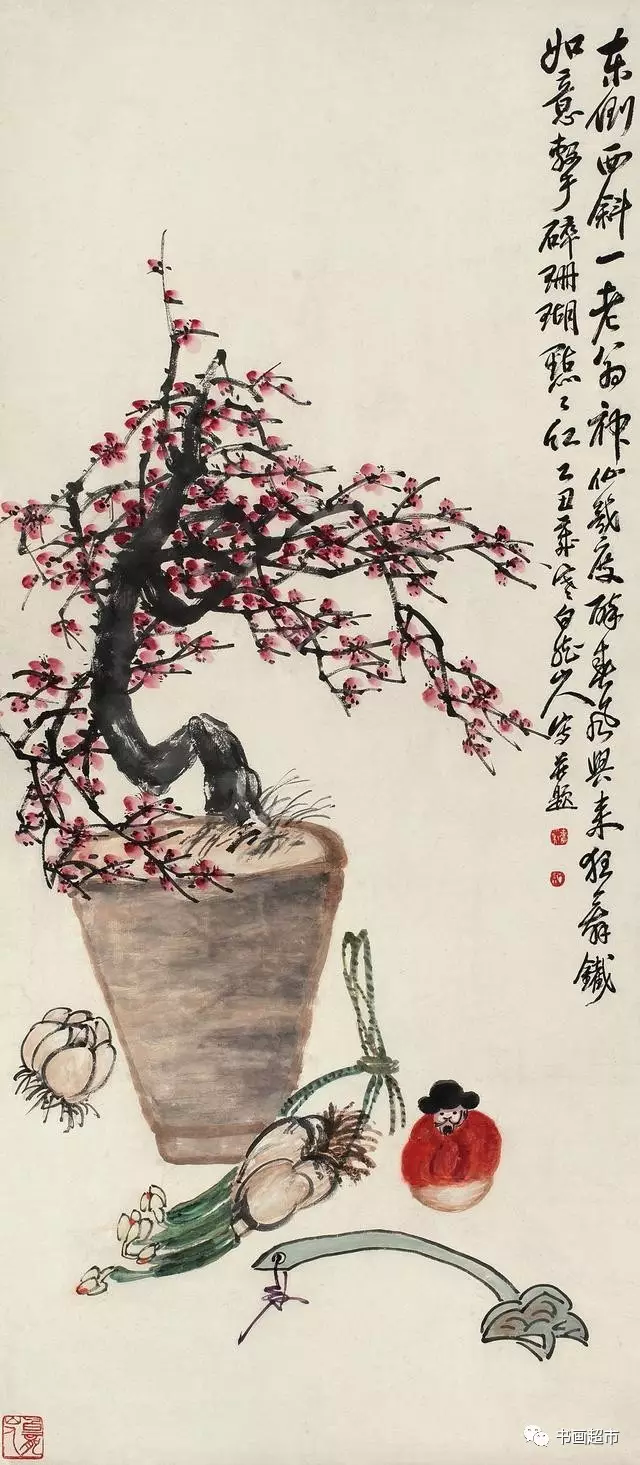 东倒西斜一老翁神仙几度醉春风兴来狂舞铁
如意击碎珊瑚点点红乙丑岁寒白龙山人写并题
书画超市